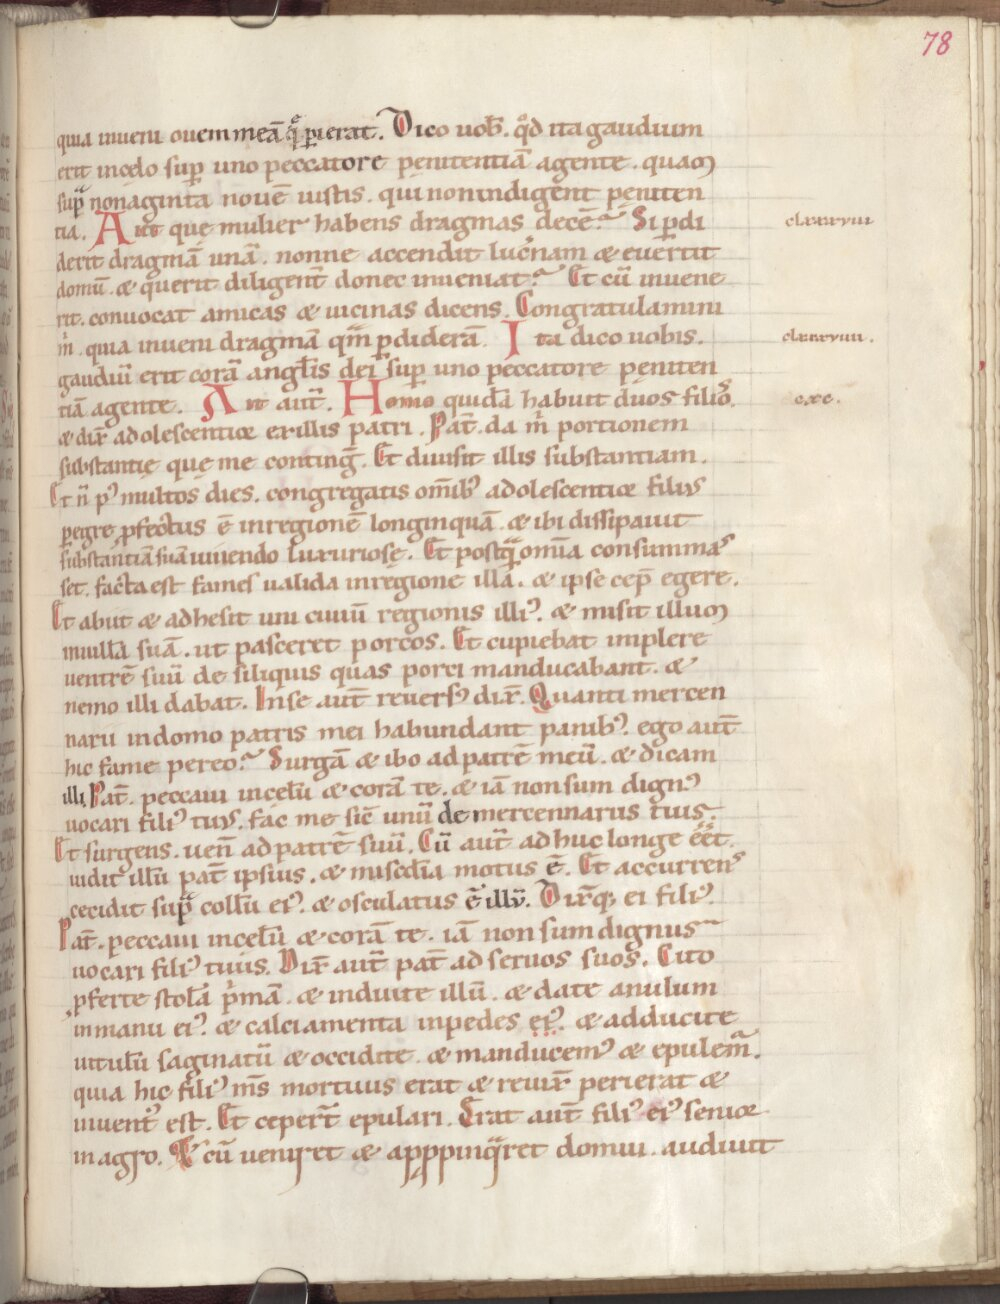 78
quia inueni ouem meā q̄ pierat. Dico uob̄. qđ ita gaudium
erit incelo sup uno peccatore penitentiā agente. quam
sup nonaginta nouē iustis. qui non indigent peniten
tia. Aut quę mulier habens dragmas decē? Si pdi clxxxviii
derit dragmā unā. nonne accendit luc̄nam & euertit
domū. & querit diligent̄ donec inueniat? Et cū inuene
rit. conuocat amicas & uicinas dicens. Congratulamini
m̄. quia inueni dragmā qm̄ pdiderā. Ita dico uobis. clxxxviiii.
gaudiū erit corā angl̄is dei sup uno peccatore peniten
tiā agente. Ait aūt. Homo quidā habuit duos filios. cxc.
& dix̄ adolescentior ex illis patri. Pat̄. da m̄ portionem
substantię quę me continḡ. Et diuisit illis substantiam.
Et n̄ p' multos dies. congregatis om̄ib' adolescentior filius
pegre pfectus ē inregionē longinquā. & ibi dissipauit
substantiā suā uiuendo luxuriose. Et postq̄ omīa consummas
set. facta est fames ualida inregione illā. & ipse cep̄ egere.
Et abiit & adhesit uni ciuiū regionis illi'. & misit illum
inuillā suā. ut pasceret porcos. Et cupiebat implere
uentrē suū de siliquis quas porci manducabant. &
nemo illi dabat. Inse aūt reuers' dix̄. Quanti mercen
narii indomo patris mei habundant panib'. ego aūt
hic fame pereo? Surgā & ibo ad patrē meū. & dicam
illi. Pat̄. peccaui incelū & corā te. & iā non sum dign'
uocari fili' tuus. fac me sic̄ unū de mercennariis tuis.
Et surgens. uen̄ ad patrē suū. Cū aūt adhuc longe eēt.
uidit illū pat̄ ipsius. & mīscdīa motus ē. Et accurrens
cecidit sup collū ei'. & osculatus ē illū. Dix̄q; ei fili'.
Pat̄. peccaui incelū & corā te. iā non sum dignus
uocari fili' tuus. Dix̄ aūt pat̄ ad seruos suos. Cito
pferte stolā p̄mā. & induite illū. & date anulum
inmanu ei'. & calciamenta inpedes ei'. & adducite
uitulū saginatū & occidite. & manducem' & epulem̄.
quia hic fili' m̄s mortuus erat & reuix̄ perierat &
inuent' est. Et ceper̄t epulari. Erat aūt fili' ei' senior
in agro. Et cū ueniret & apppinq̄ret domui. audiuit